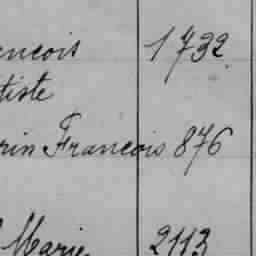 encois 1732
tiste
rin Francois 876
Marie 2113